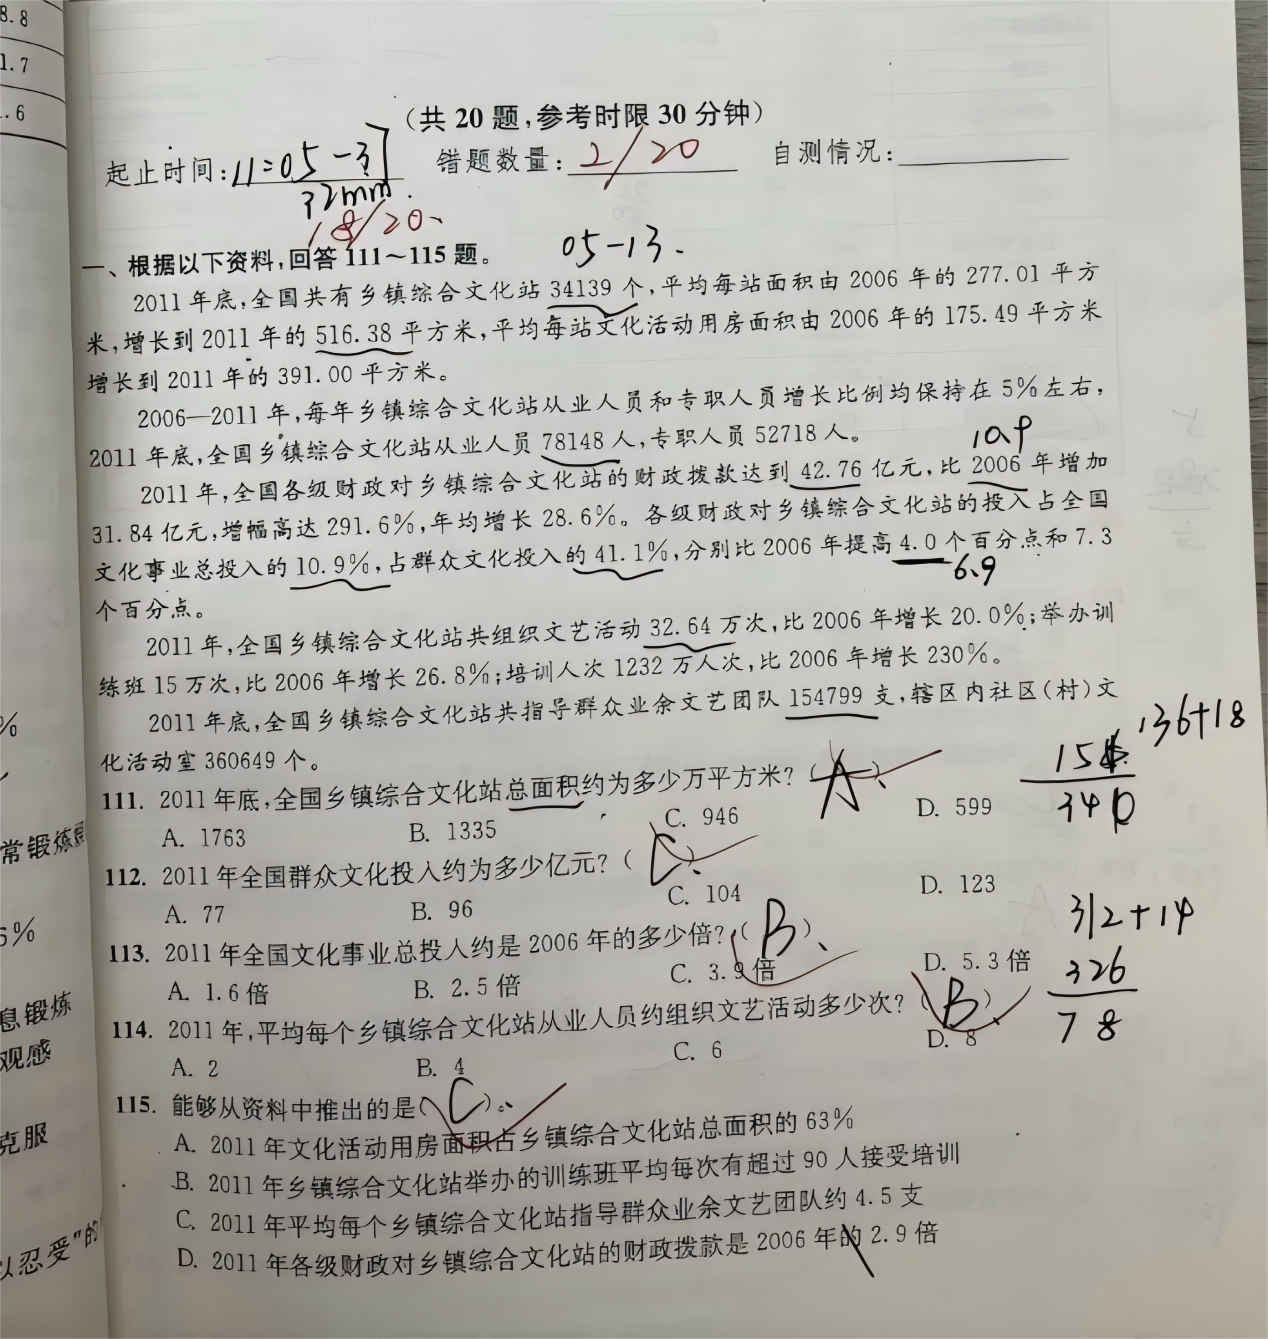 8.8
1.7
.6
(共 20 题,参考时限 30 分钟)
起止时间:11:05-37 错题数量:2/20 自测情况:
32min
18/20
一、根据以下资料,回答 111～115 题。 05-13
2011 年底,全国共有乡镇综合文化站 34139 个,平均每站面积由 2006 年的 277.01 平方
米,增长到 2011 年的 516.38 平方米,平均每站文化活动用房面积由 2006 年的 175.49 平方米
增长到 2011 年的 391.00 平方米。
2006—2011 年,每年乡镇综合文化站从业人员和专职人员增长比例均保持在 5%左右,
2011 年底,全国乡镇综合文化站从业人员 78148 人,专职人员 52718 人。
10.9
2011 年,全国各级财政对乡镇综合文化站的财政拨款达到 42.76 亿元,比 2006 年增加
31.84 亿元,增幅高达 291.6%,年均增长 28.6%。各级财政对乡镇综合文化站的投入占全国
文化事业总投入的 10.9%,占群众文化投入的 41.1%,分别比 2006 年提高 4.0 个百分点和 7.3
6.9
个百分点。
2011 年,全国乡镇综合文化站共组织文艺活动 32.64 万次,比 2006 年增长 20.0%;举办训
练班 15 万次,比 2006 年增长 26.8%;培训人次 1232 万人次,比 2006 年增长 230%。
2011 年底,全国乡镇综合文化站共指导群众业余文艺团队 154799 支,辖区内社区(村)文
化活动室 360649 个。
136+18
111. 2011 年底,全国乡镇综合文化站总面积约为多少万平方米?(A)
A. 1763 B. 1335 C. 946 D. 599
340
112. 2011 年全国群众文化投入约为多少亿元?(C)
A. 77 B. 96 C. 104 D. 123
113. 2011 年全国文化事业总投入约是 2006 年的多少倍?(B)
312+14
A. 1.6 倍 B. 2.5 倍 C. 3.9 倍 D. 5.3 倍
326
78
114. 2011 年,平均每个乡镇综合文化站从业人员约组织文艺活动多少次?(B)
A. 2 B. 4 C. 6 D. 8
115. 能够从资料中推出的是(C)。
A. 2011 年文化活动用房面积占乡镇综合文化站总面积的 63%
B. 2011 年乡镇综合文化站举办的训练班平均每次有超过 90 人接受培训
C. 2011 年平均每个乡镇综合文化站指导群众业余文艺团队约 4.5 支
D. 2011 年各级财政对乡镇综合文化站的财政拨款是 2006 年的 2.9 倍
%
常锻炼
5%
息锻炼
观感
克服
以忍受”的